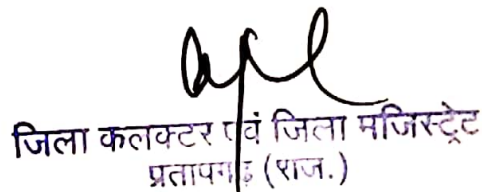 जिला कलक्टर एवं जिला मजिस्ट्रेट
प्रतापगढ़ (राज.)